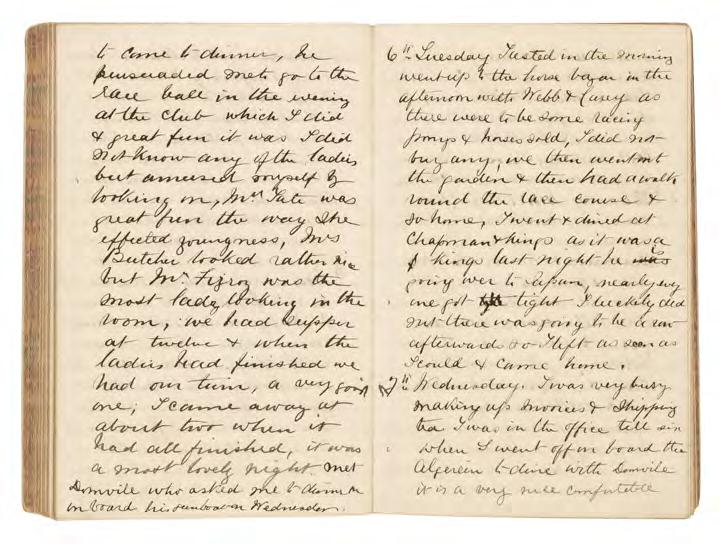 to come to dinner, he
persuaded me to go to the
race ball in the evening
at the Club which I did
& great fun it was I did
not know any of the ladies
but amused myself by
looking on, Mrs Tate was
great fun the way she
effected youngness, Mrs
Butcher looked rather nice
but Mrs Fizroy was the
most lady looking in the
room, we had supper
at twelve & when the
ladies had finished we
had our turn, a very good
one; I came away at
about two when it
had all finished, it was
a most lovely night. met
Domvile who asked me to dinner
on board his gunboat on Wednesday.
6th Tuesday I in the morning
went up to the horse bazar in the
afternoon with Webb & Casey as
there were to be some racing
ponys & horses sold, I did not
buy any, we then went out
the garden & then had a walk
round the race course &
so home, I went & dined at
Chapman & Kings as it was
Kings last night he is
going over to Japan, nearly evry
one got tight I luckily did
not there was going to be a row
afterwards so I left as soon as
I could & came home.
7th Wednesday. I was very busy
making up invoices & shipping
tea I was in the office till six
when I went off on board the
Algerein to dine with Domvile
it is a very nice comfortable